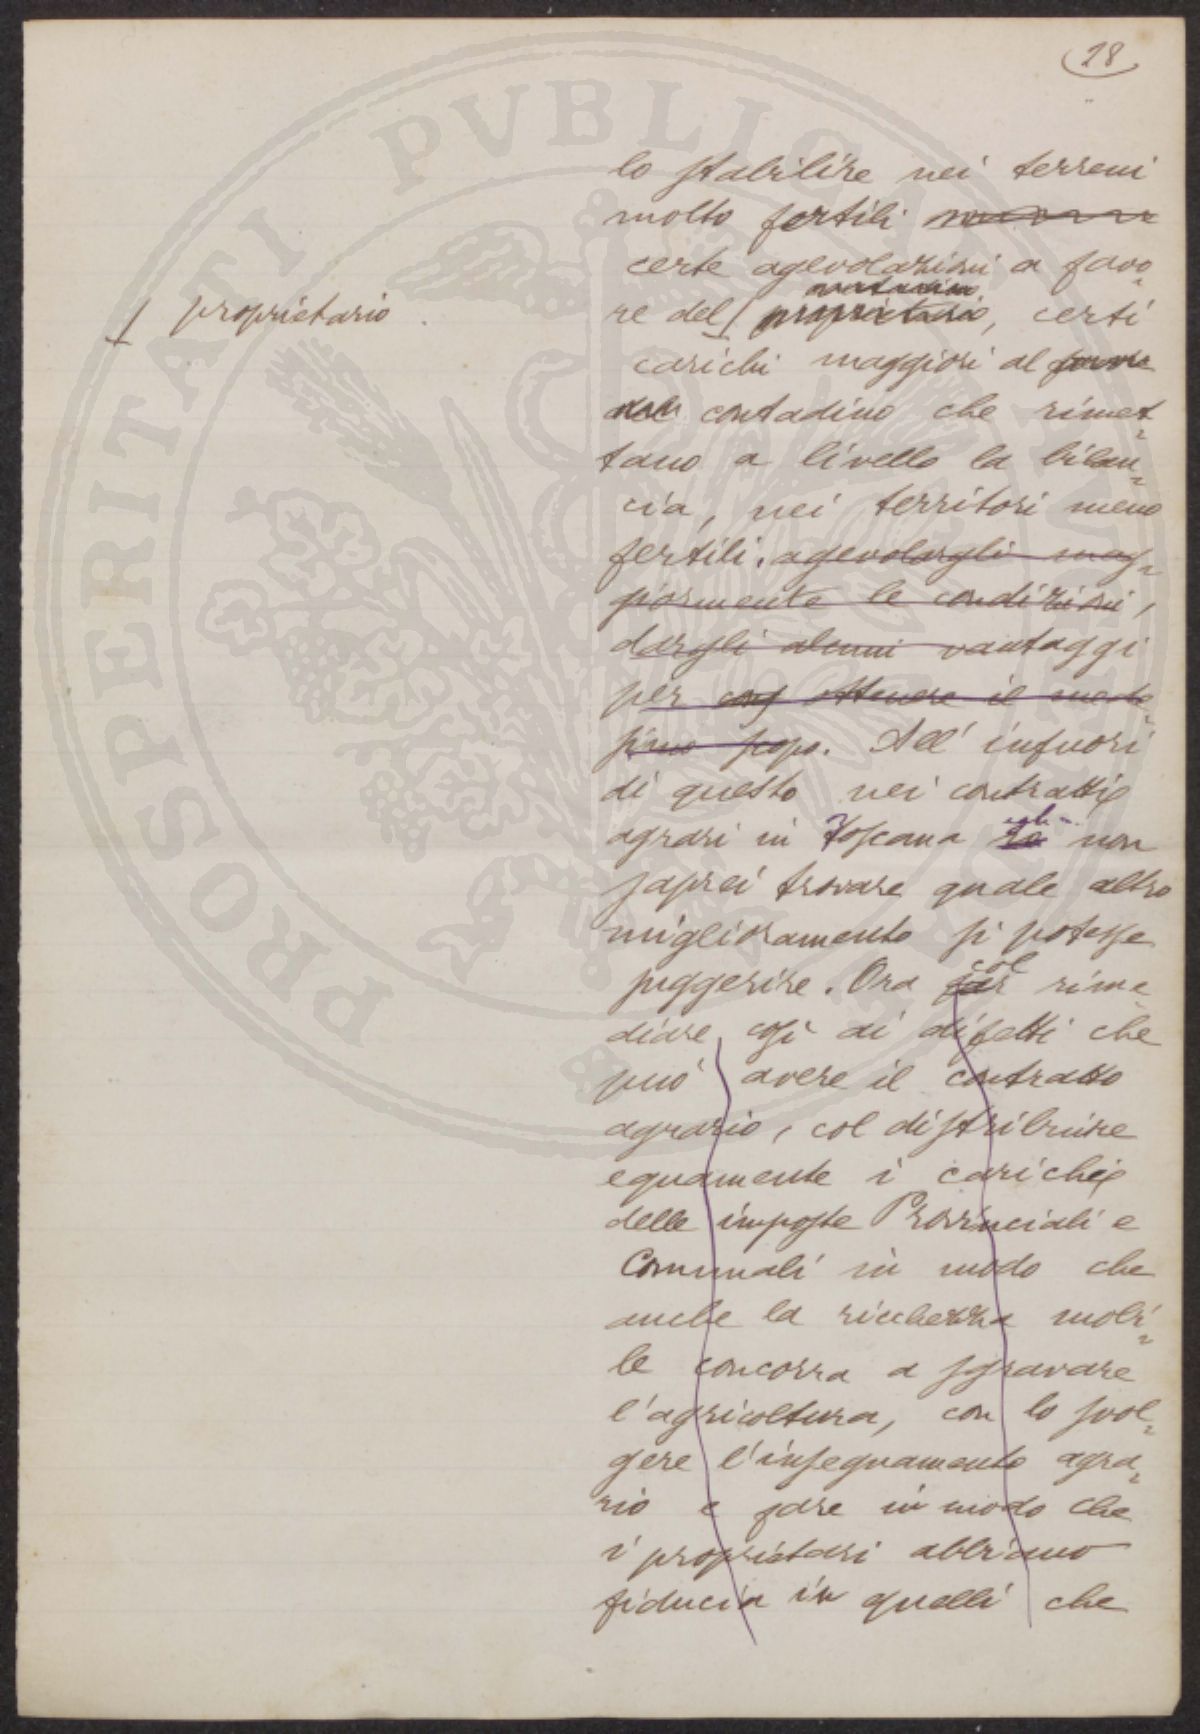 28
lo stabilire nei terreni
molto fertili
certe agevolazioni a favo
re del proprietario, certi
proprietario
carichi maggiori al
contadino che rimet
tano a livello la bilan
cia, nei territori meno
fertili. agevolargli mag
giormente le condizioni,
dargli alcuni vantaggi
per ottenere il mede
simo scopo. All' infuori
di questo nei contratti
agrari in Toscana non
saprei trovare quale altro
miglioramento si potesse
suggerire. Ora col rime
diare così ai difetti che
può avere il contratto
agrario, col distribuire
equamente i carichi
delle imposte Provinciali e
Comunali in modo che
anche la ricchezza mobi
le concorra a sgravare
l'agricoltura, con lo svol
gere l'insegnamento agra
rio e fare in modo che
i proprietari abbiano
fiducia in quelli che
PROSPERITATI PVBLICAE